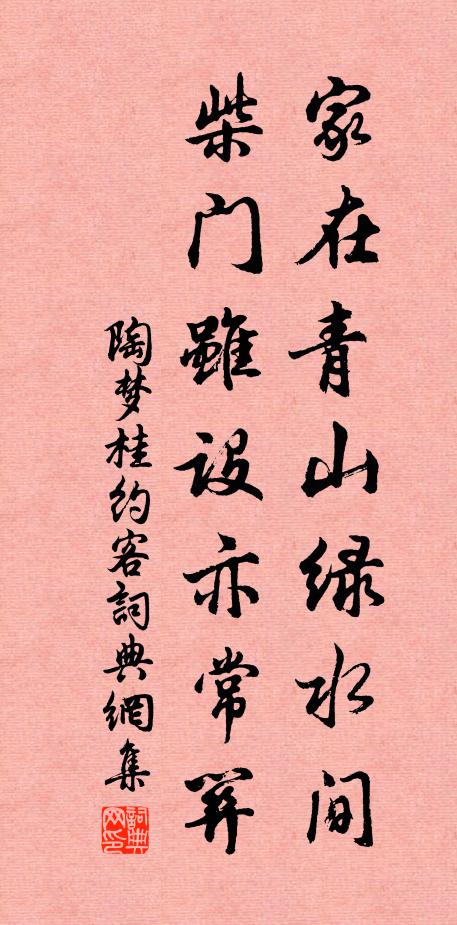 家在青山绿水间
柴门雖设亦常关
陶梦桂约客詞典網集
詞典网印